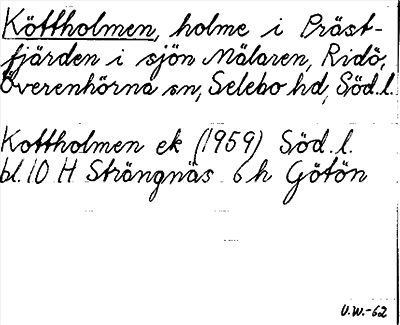 Köttholmen, holme i Präst-
fjärden i sjön Mälaren, Ridö,
Överenhörna sn, Selebo hd, Söd.l.
Kottholmen ek (1959) Söd.l.
bl. 10 H Strängnäs 6 h Götön
U.W.-62